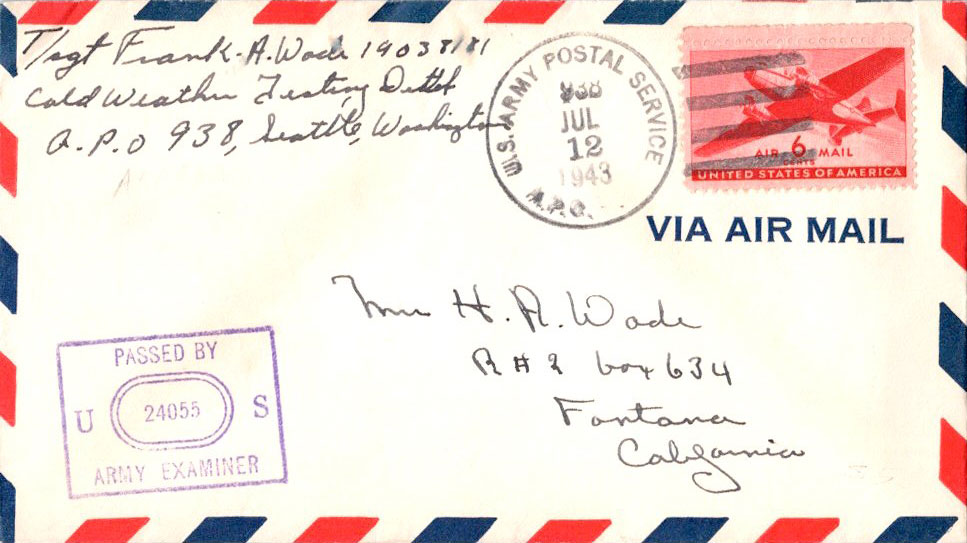 T/sgt Frank. A. Wade 19038181
Cold Weather Testing Detth
A.P.O 938, Seattle, Washington
U.S. ARMY POSTAL SERVICE
938
JUL
12
1943
A.P.O.
AIR 6 MAIL
CENTS
UNITED STATES OF AMERICA
VIA AIR MAIL
H. A. Wade
R # 2 box 634
Fontana
California
PASSED BY
U 24055 S
ARMY EXAMINER